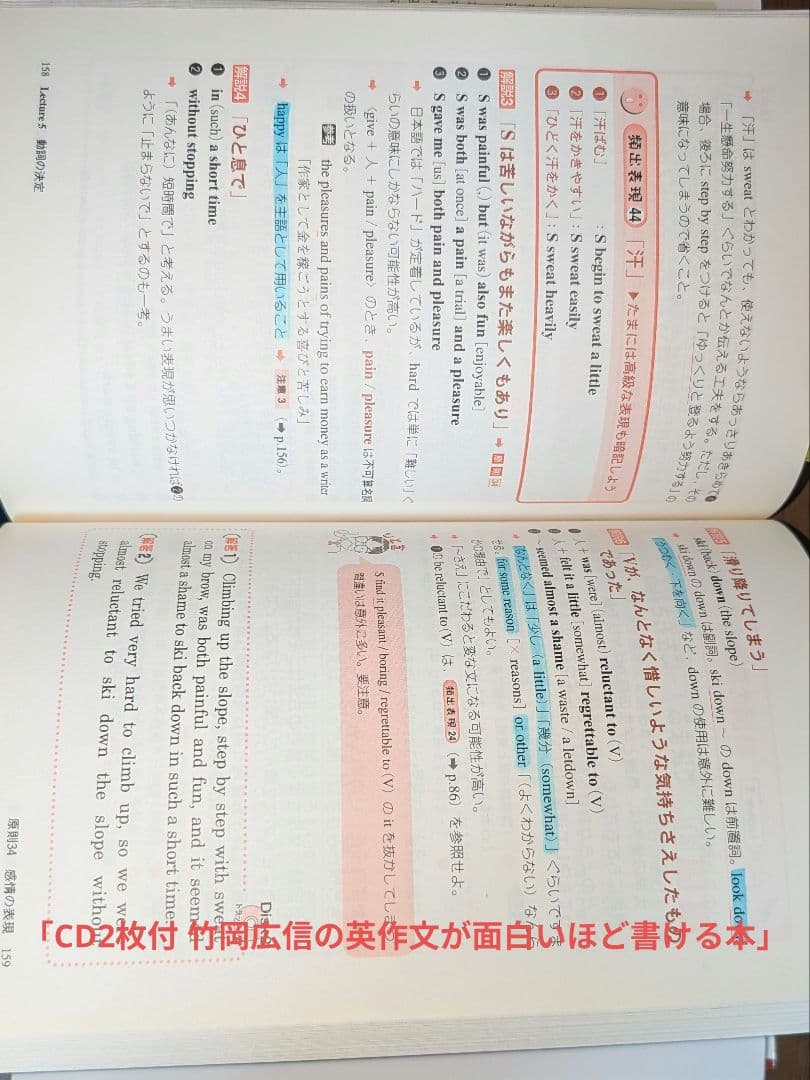 ➡ 「汗」は sweat とわかっても、使えないようならあっさりあきらめて
「一生懸命努力する」ぐらいでなんとか伝える工夫をする。ただし、その
場合、後ろに step by step をつけると「ゆっくりと登るよう努力する」の
意味になってしまうので省くこと。
頻出表現 44 「汗」 ▶たまには高級な表現も暗記しよう
❶ 「汗ばむ」 : S begin to sweat a little
❷ 「汗をかきやすい」: S sweat easily
❸ 「ひどく汗をかく」: S sweat heavily
解説3 「S は苦しいながらもまた楽しくもあり」 ➡ 原則34
❶ S was painful (,) but (it was) also fun [enjoyable]
❷ S was both [at once] a pain [a trial] and a pleasure
❸ S gave me [us] both pain and pleasure
➡ 日本語では「ハード」が定着しているが、hard では単に「難しい」く
らいの意味にしかならない可能性が高い。
➡ 〈give + 人 + pain / pleasure〉のとき、pain / pleasure は不可算名詞
の扱いとなる。
参考 the pleasures and pains of trying to earn money as a writer
「作家として金を稼ごうとする喜びと苦しみ」
➡ happy は「人」を主語として用いること ➡ 注意 3 (➡p.156)。
解説4 「ひと息で」
❶ in (such) a short time
❷ without stopping
➡ 「(あんなに) 短時間で」と考える。うまい表現が思いつかなければ❷の
ように「止まらないで」とするのも一考。
158 Lecture 5 動詞の決定
「滑り降りてしまう」
ski (back) down (the slope)
ski down の down は副詞。ski down ～ の down は前置詞。look down
「うつむく、下を向く」など、down の使用は意外に難しい。
「Vが、なんとなく惜しいような気持ちさえしたもの
であった」
人 + was [were] (almost) reluctant to (V)
人 + felt it a little [somewhat] regrettable to (V)
～ seemed almost a shame [a waste / a letdown]
「なんとなく」は「少し (a little)」「幾分 (somewhat)」ぐらいですま
せる。for some reason [× reasons] or other「(よくわからない) なんら
かの理由で」としてもよい。
「～さえ」にこだわると変な文になる可能性が高い。
❶の be reluctant to (V) は、頻出表現 24 (➡p.86) を参照せよ。
S find it pleasant / boring / regrettable to (V) の it を抜かしてしまう
間違いは意外に多い。要注意。
解答1 Climbing up the slope, step by step with sweat
on my brow, was both painful and fun, and it seemed
almost a shame to ski back down in such a short time.
解答2 We tried very hard to climb up, so we were
almost reluctant to ski down the slope without
stopping.
原則34 感情の表現 159
「CD2枚付 竹岡広信の英作文が面白いほど書ける本」